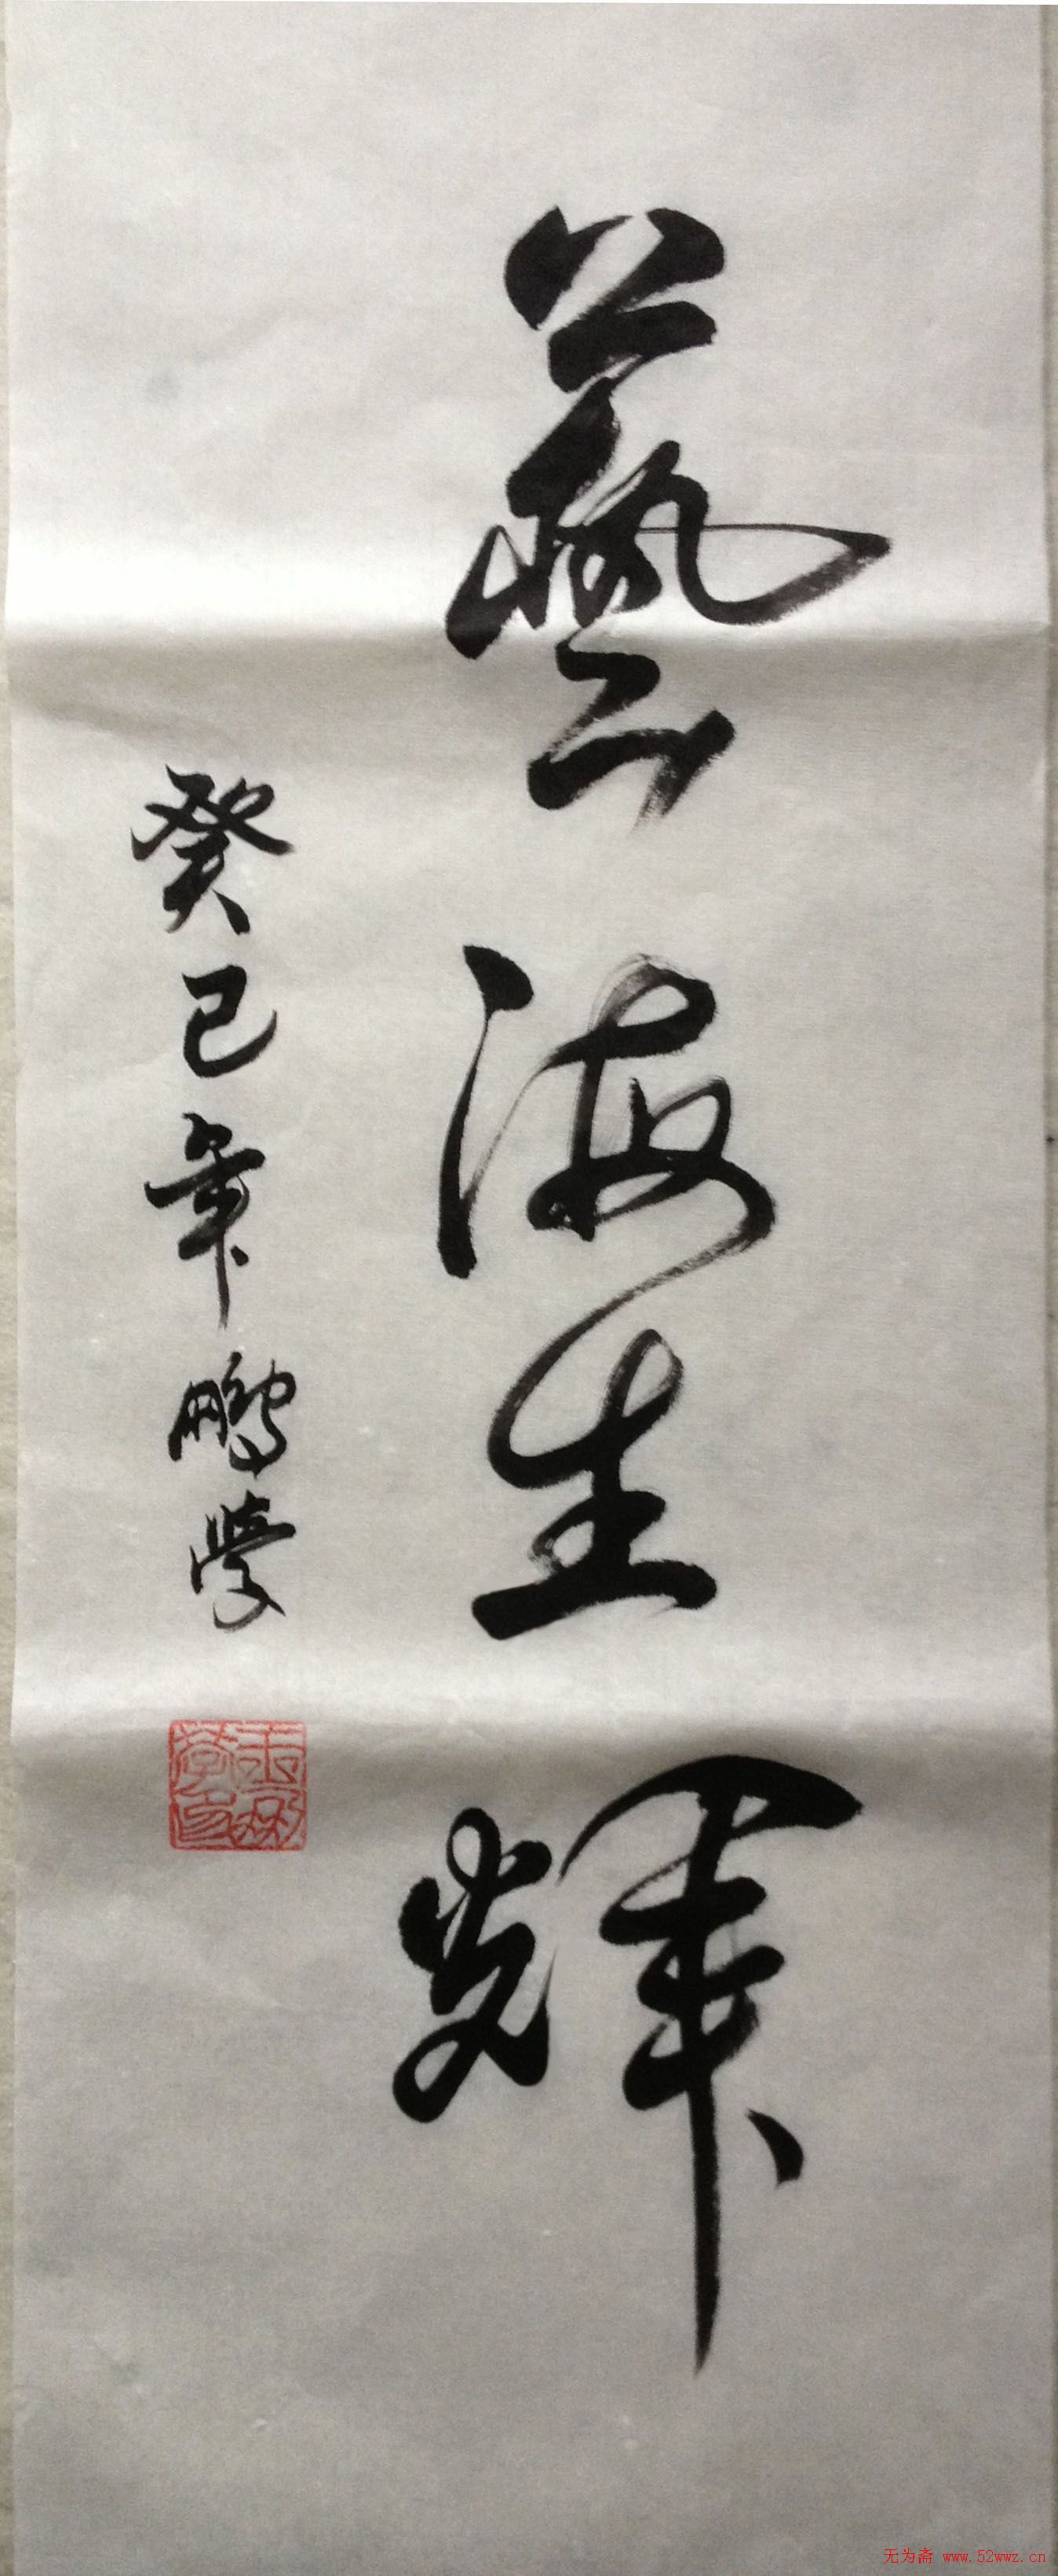 藝海生輝
癸巳年鵬學
无为斋 www.52wwz.cn